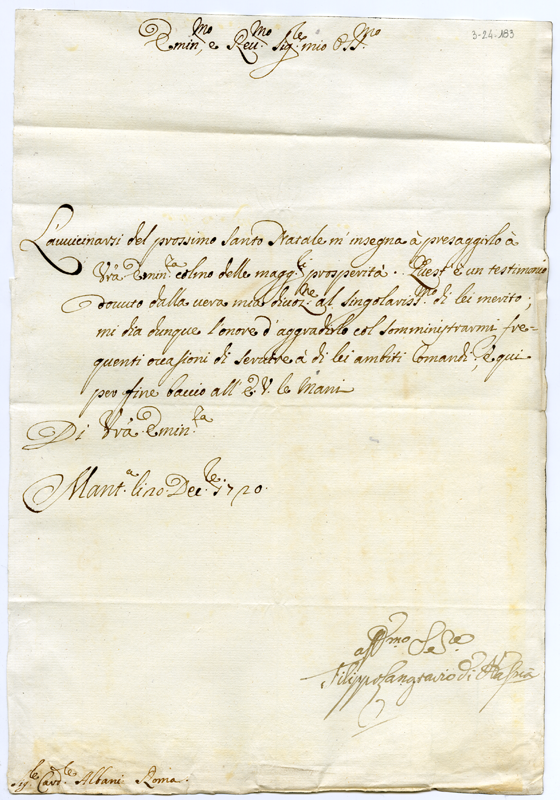 3-24-183
Emin.mo e Reu.mo Sig.re mio Oss.mo
L'auuicinarsi del prossimo Santo Natale m'insegna à presaggirlo à
Vrã Emin.za colmo delle magg.ri prosperità. Quest'è un testimonio
douuto dalla uera mia diuoz.ne al singolariss.mo di lei merito;
mi dia dunque l'onore d'aggradirlo col somministrarmi fre-
quenti occasioni di seruire à di lei ambiti Comandi, è qui
per fine baccio all'E.V. le Mani
Di Vrã Emin.za
Mant.a li 20 Dec.re 1720
aff.mo Se.re
Filippo Langravio di Hassia
Card.le Albani Roma.